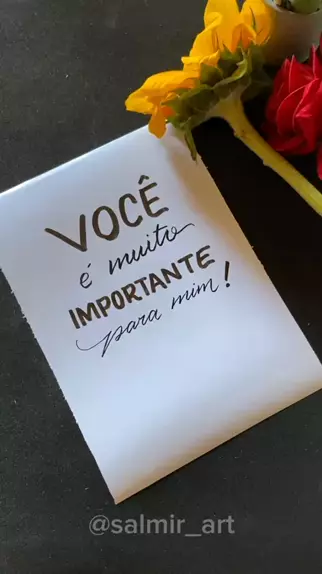 VOCÊ
é muito
IMPORTANTE
para mim!
@salmir_art